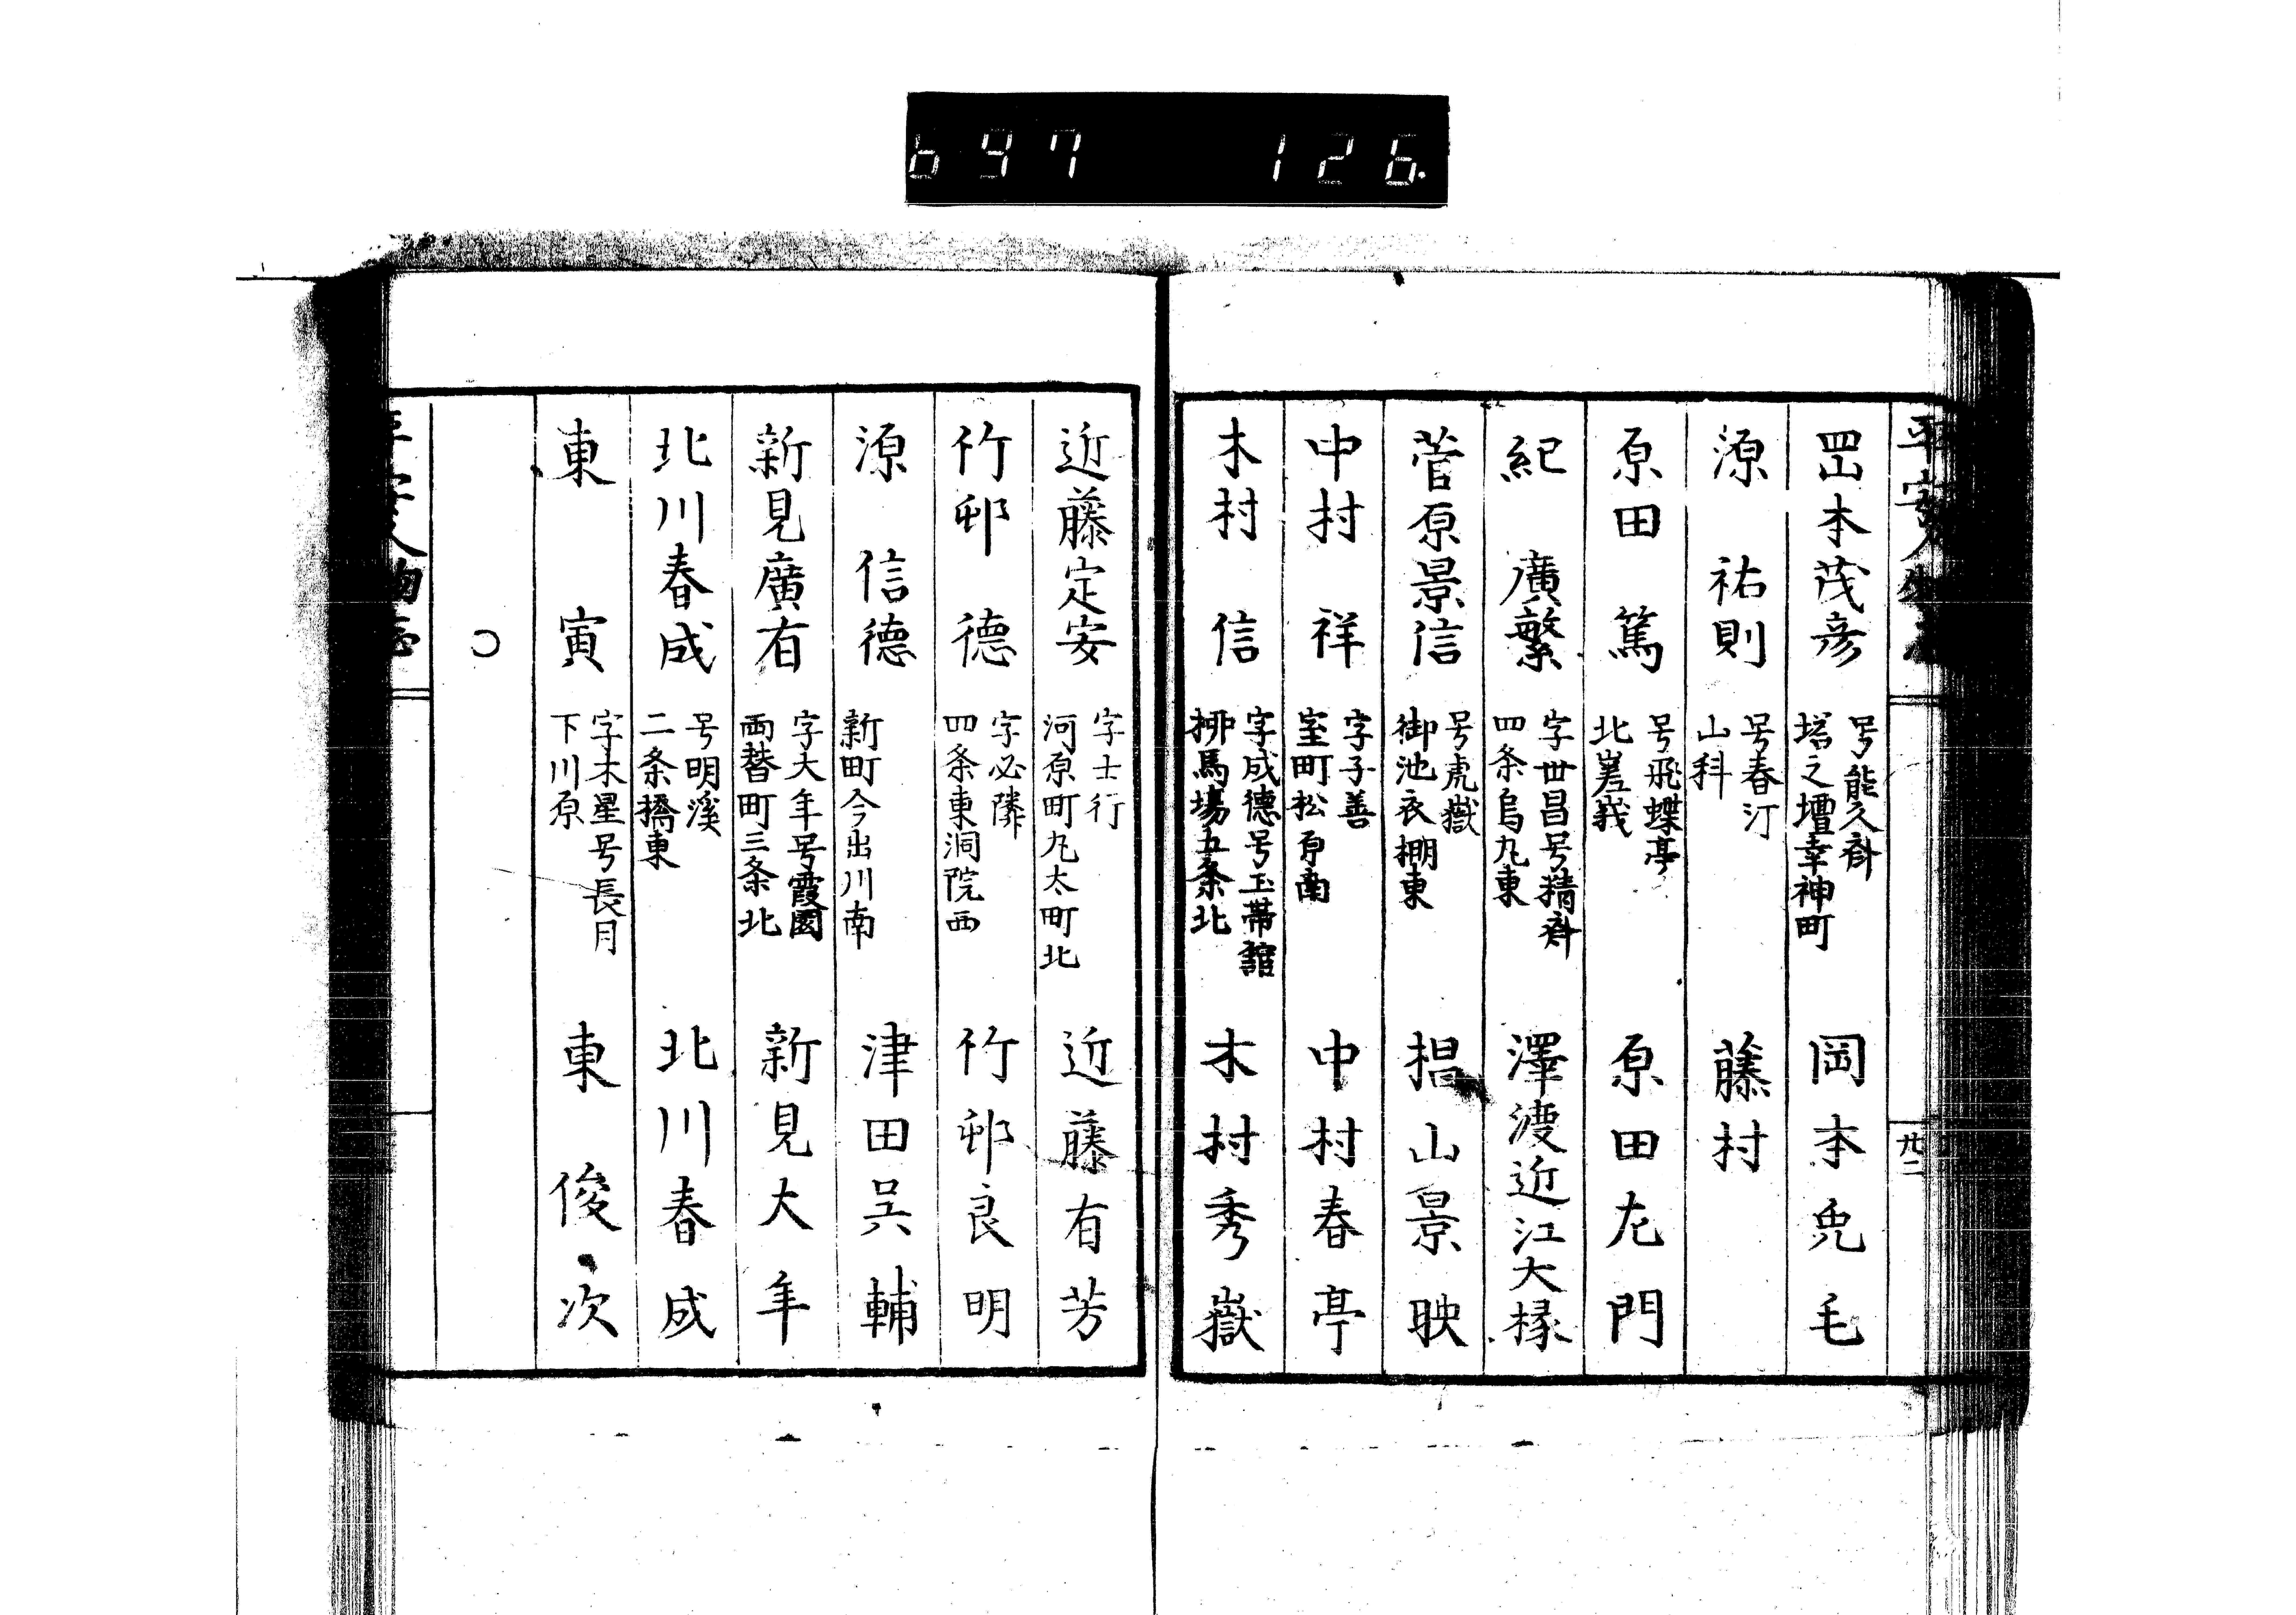 697 126.
平安人物志
廿二
岡本茂彦
号能久斎
塔之壇幸神町
岡本兎毛
源祐則
号春汀
山科
藤村
原田篤
号飛蝶亭
北嵯峩
原田尤門
紀廣繁
字世昌号精斎
四条烏丸東
澤渡近江大椽
菅原景信
号虎嶽
御池衣棚東
椙山景映
中村祥
字子善
室町松原南
中村春亭
木村信
字成德号玉帯館
栁馬場五条北
木村秀嶽
近藤定安
字士行
河原町丸太町北
近藤有芳
竹邨德
字必隣
四条東洞院西
竹邨良明
源信德
新町今出川南
津田呉輔
新見廣有
字大年号霞園
両替町三条北
新見大年
北川春成
号明溪
二条橋東
北川春成
東寅
字木星号長月
下川原
東俊次
平安人物志